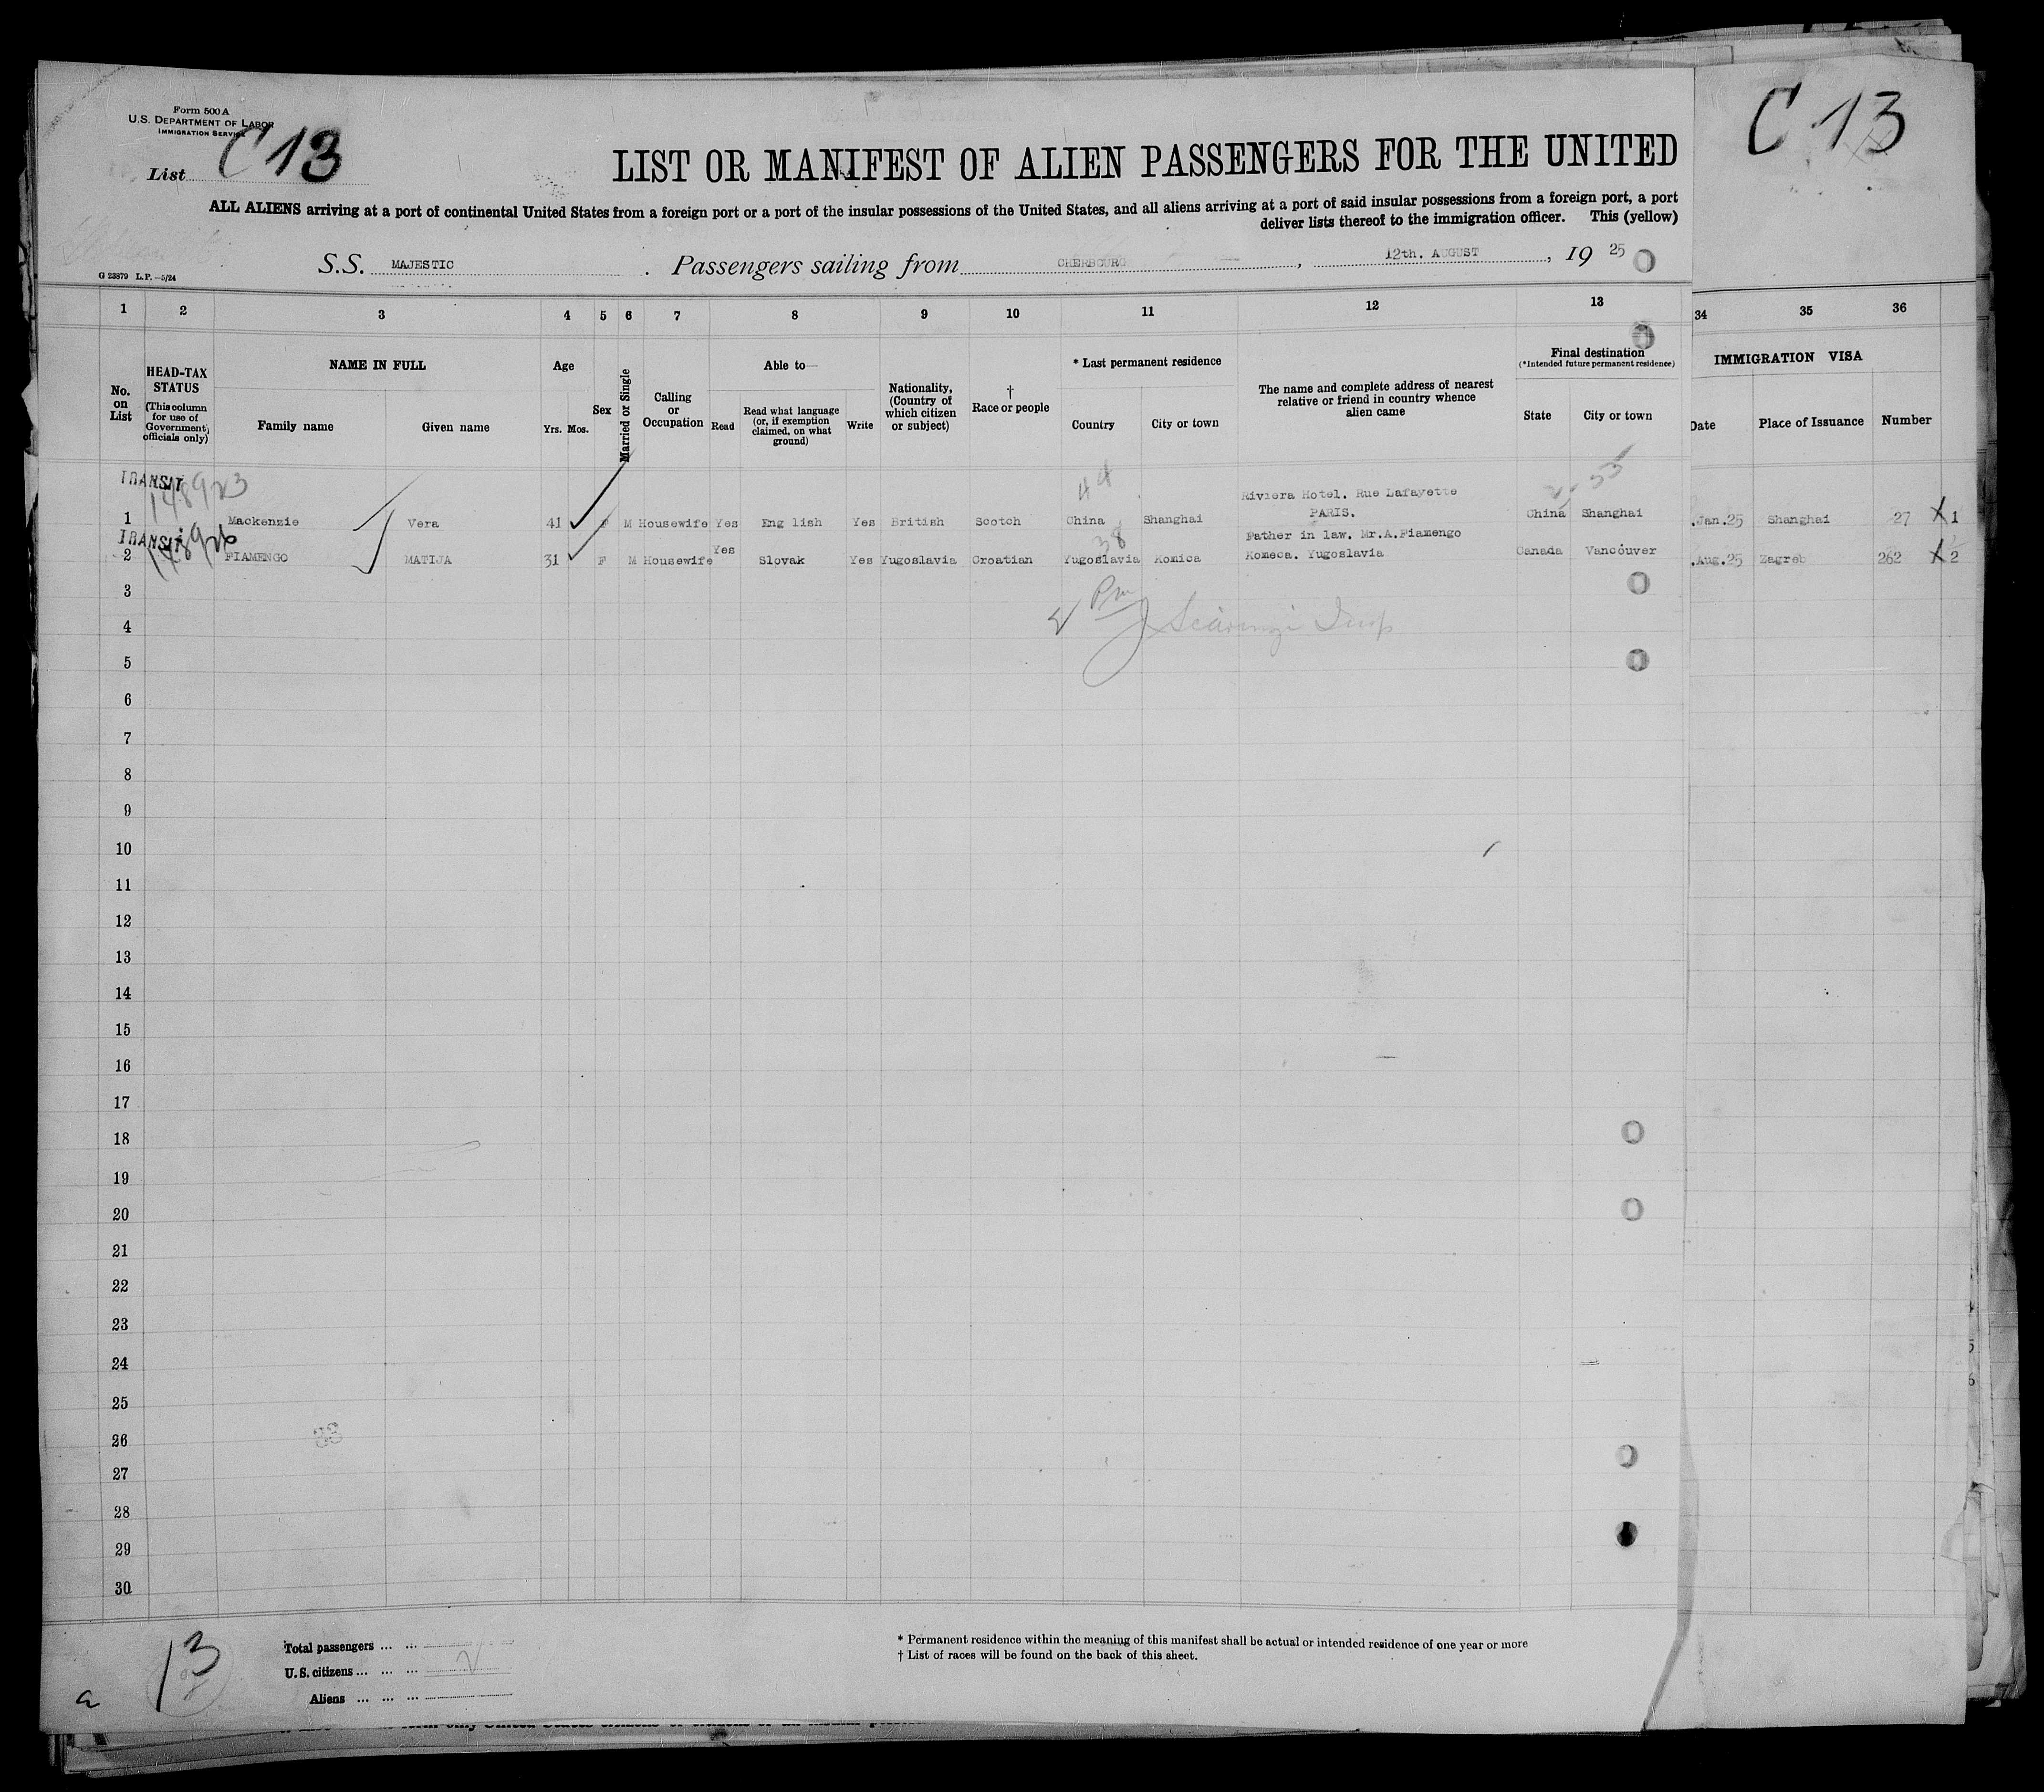 Form 500 A
U.S. DEPARTMENT OF LABOR
IMMIGRATION SERVICE
List C 13
C 13
LIST OR MANIFEST OF ALIEN PASSENGERS FOR THE UNITED
ALL ALIENS arriving at a port of continental United States from a foreign port or a port of the insular possessions of the United States, and all aliens arriving at a port of said insular possessions from a foreign port, a port
deliver lists thereof to the immigration officer. This (yellow)
S.S. MAJESTIC . Passengers sailing from CHERBOURG, 12th. AUGUST, 19 25
G 23879 L.P.—5/24
1 2 3 4 5 6 7 8 9 10 11 12 13 34 35 36
No. on List
HEAD-TAX STATUS
(This column for use of Government officials only)
NAME IN FULL
Family name Given name
Age
Yrs. Mos.
Sex
Married or Single
Calling or Occupation
Able to—
Read
Read what language (or, if exemption claimed, on what ground)
Write
Nationality, (Country of which citizen or subject)
† Race or people
* Last permanent residence
Country City or town
The name and complete address of nearest relative or friend in country whence alien came
Final destination
(*Intended future permanent residence)
State City or town
IMMIGRATION VISA
Date Place of Issuance Number
TRANSIT 148923
44
Riviera Hotel. Rue Lafayette
1 Mackenzie Vera 41 F M Housewife Yes Eng lish Yes British Scotch China Shanghai PARIS. China Shanghai .Jan.25 Shanghai 27 X 1
TRANSIT
38
Father in law. Mr.A.Fiamengo
2 FIAMENGO MATIJA 31 F M Housewife Yes Slovak Yes Yugoslavia Croatian Yugoslavia Komica Komeca. Yugoslavia Canada Vancouver .Aug.25 Zagreb 262 X 2
3
4
5
6
7
8
9
10
11
12
13
14
15
16
17
18
19
20
21
22
23
24
25
26
27
28
29
30
13
Total passengers ... ...
U.S. citizens ... ... ...
Aliens ... ... ...
* Permanent residence within the meaning of this manifest shall be actual or intended residence of one year or more
† List of races will be found on the back of this sheet.